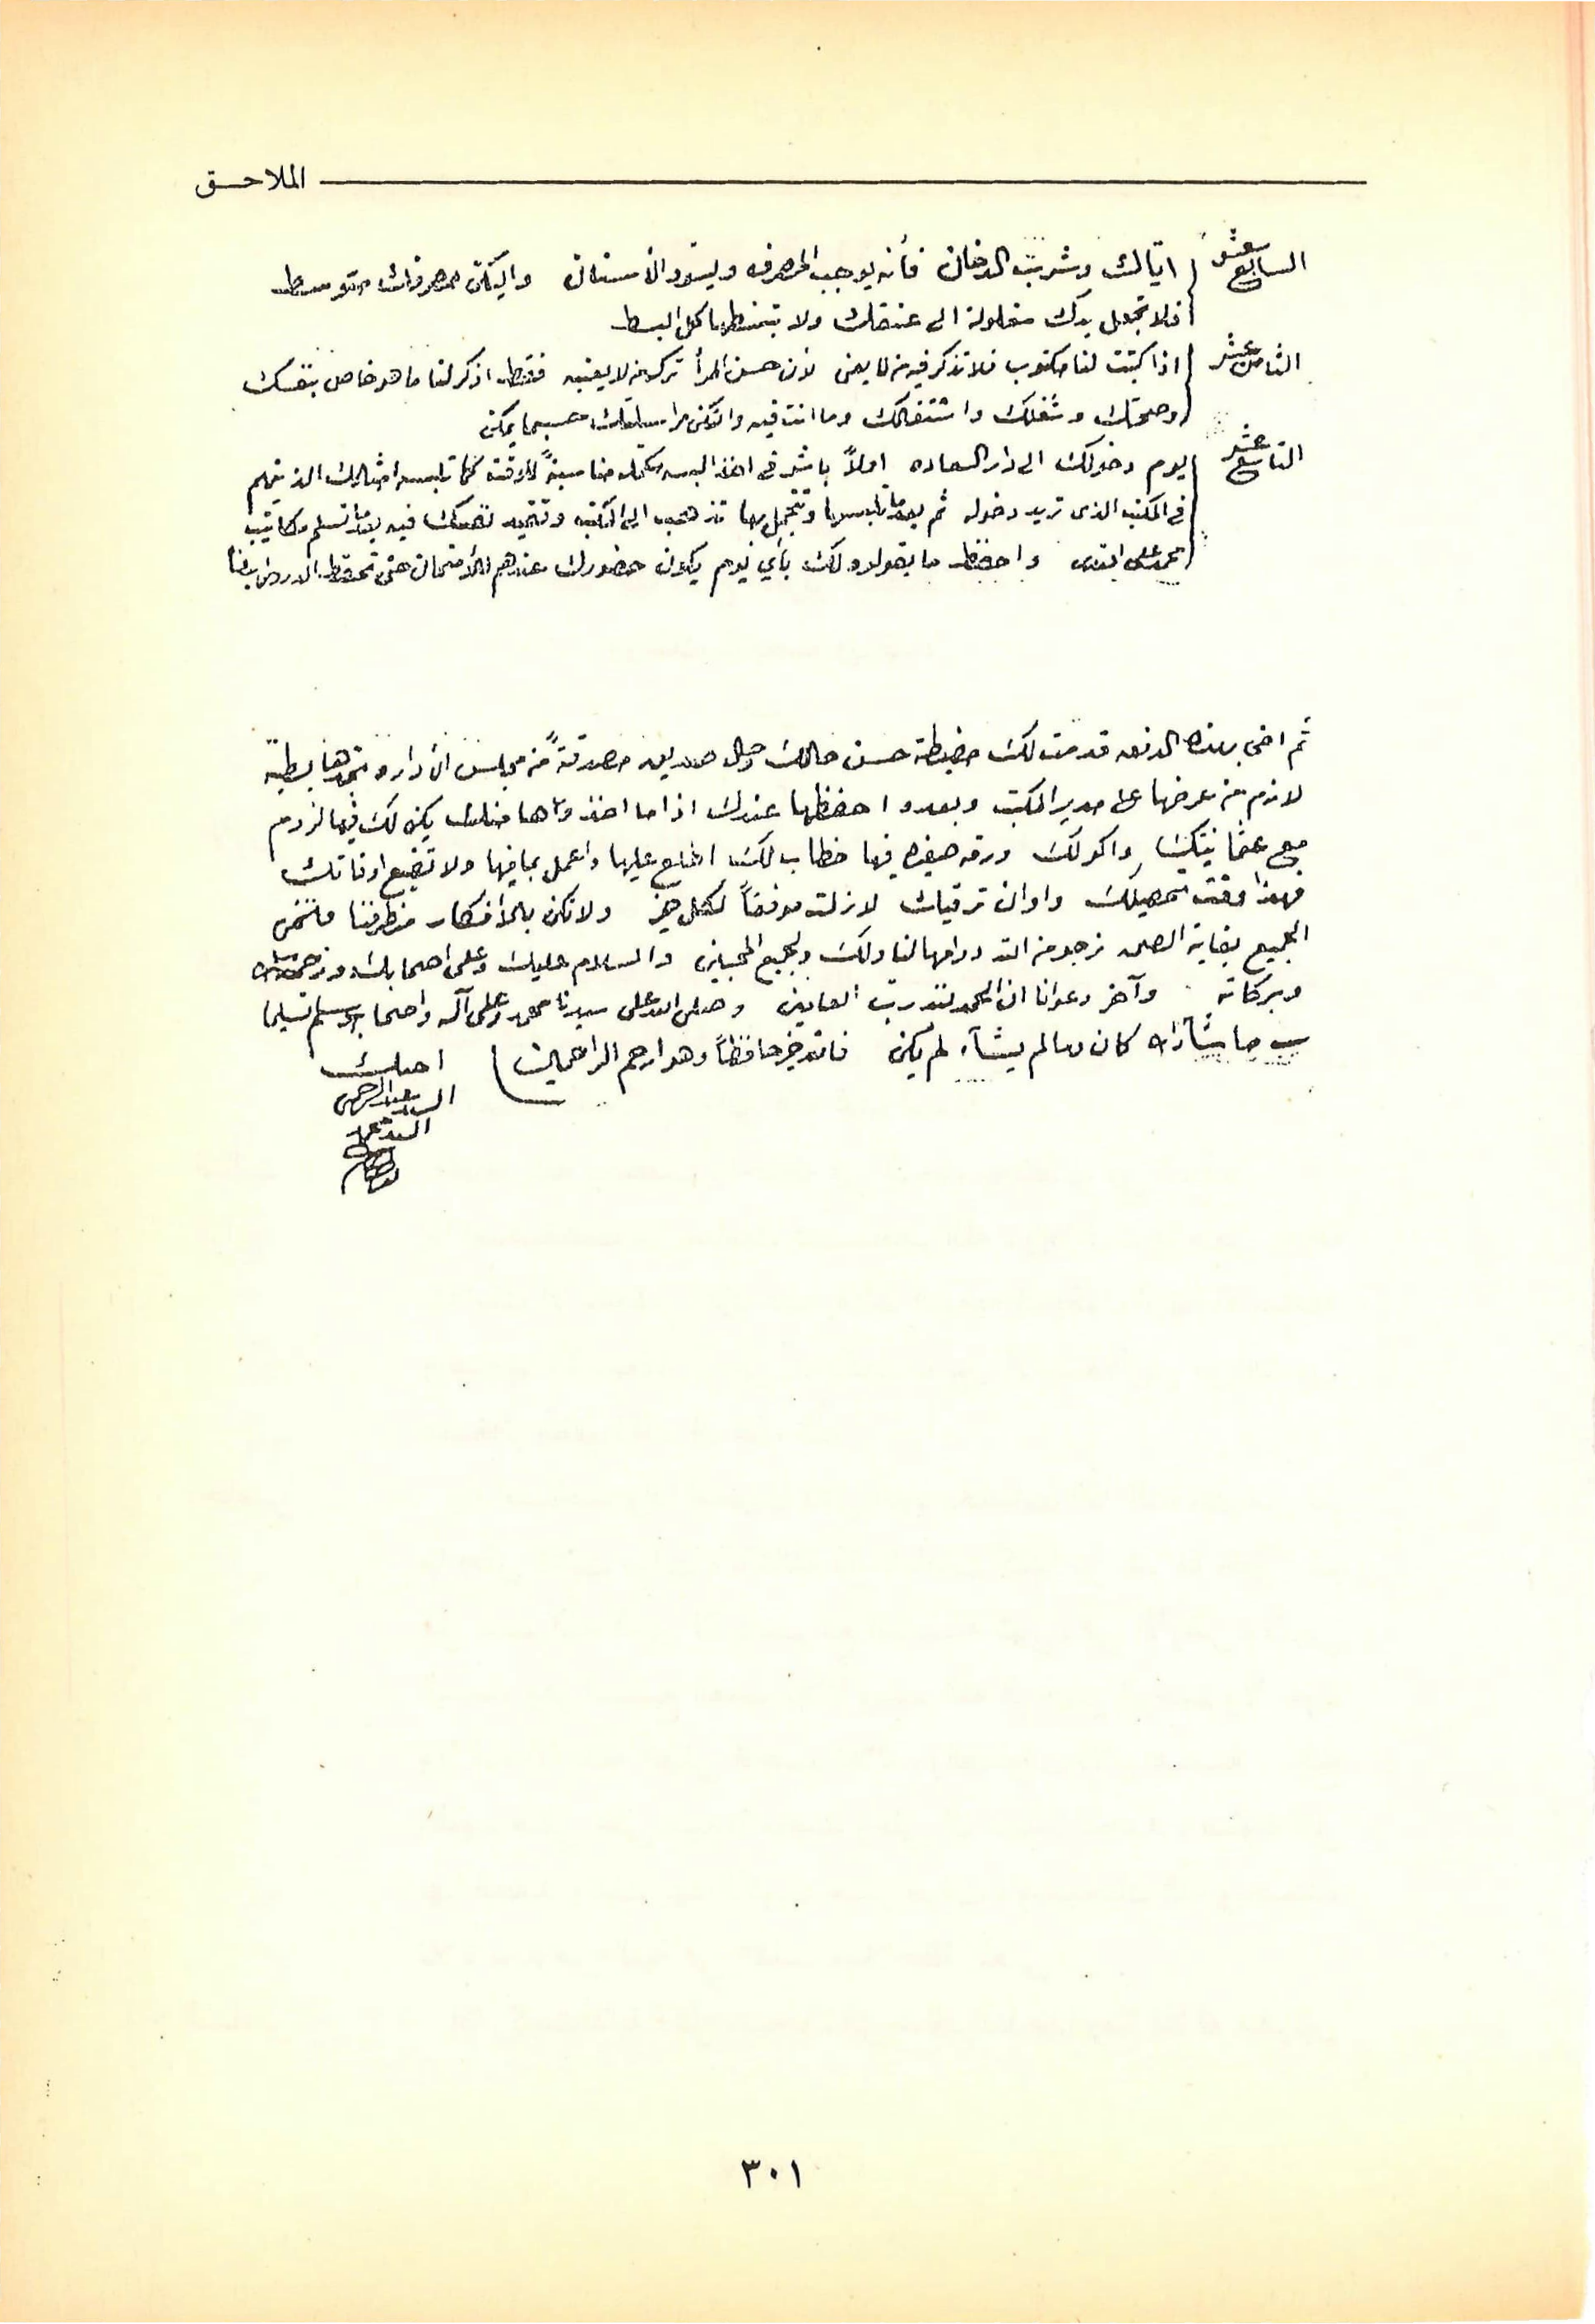 الملاحـق
السابع عشر اياك وشرب الدخان فأنه يوجب المصرف ويسود الاسنان واليكن مصرفك متوسط
فلا تجعل يدك مغلولة الى عنقك ولا تبسطها كل البسط
الثامن عشر اذا كتبت لنا مكتوب فلا تذكر فيه من لا يعنى لان حسن المرأ تركه من لا يعنيه فقط اذكر لنا ما هو خاص بنفسك
وصحتك وشغلك واشتغالك وما انت فيه والتكن مراسلتك حسبما يمكن
التاسع عشر يوم دخولك الى دار السعاده اولاً باشر فى اخذ البسه مناسبةً للوقت كما تلبسه امثالك الذينهم
فى المكتب الذى تريد دخوله ثم بعد ما تلبسها وتتجمل بها تذهب الى المكتب وتقيد نفسك فيه بعد ما تسلم مكاتيب
محمد على افندى واحفظ ما يقولو لك بأي يوم يكون حضورك عندهم للأمتحان حتى تحفظ الدروس
ثم اخى بهذه الدفعه قدمت لك مضبطة حسن حالك مصدقةً من مجلس الاداره تجدها بطيه
لازم من عرضها على مدير المكتب وبعده احفظها عندك اذا ما اخذوها منك يكن لك فيها لزوم
مع عثمانيتك واكو لك ورقه صغيره فيها خطاب لك اطلع عليها واعمل بما فيها ولا تضيع اوقاتك
فهذا وقت تحصيلك واوان ترقياتك لازلت موفقاً لكل خير ولا تكن بالافكار من طرفنا فأنحن
الجميع بغاية الصحه نرجو من الله دوامها لنا ولك ولجميع المحبين والسلام عليك وعلى اصحابك ورحمة الله
وبركاته وآخر دعوانا ان الحمد لله رب العالمين وصلى الله على سيدنا محمد وعلى آله واصحابه وسلم تسليما
ما شآء الله كان وما لم يشآء لم يكن فالله خير حافظاً وهو ارحم الراحمين
السيد عبدالرحمن
السيد محمد
٣٠١